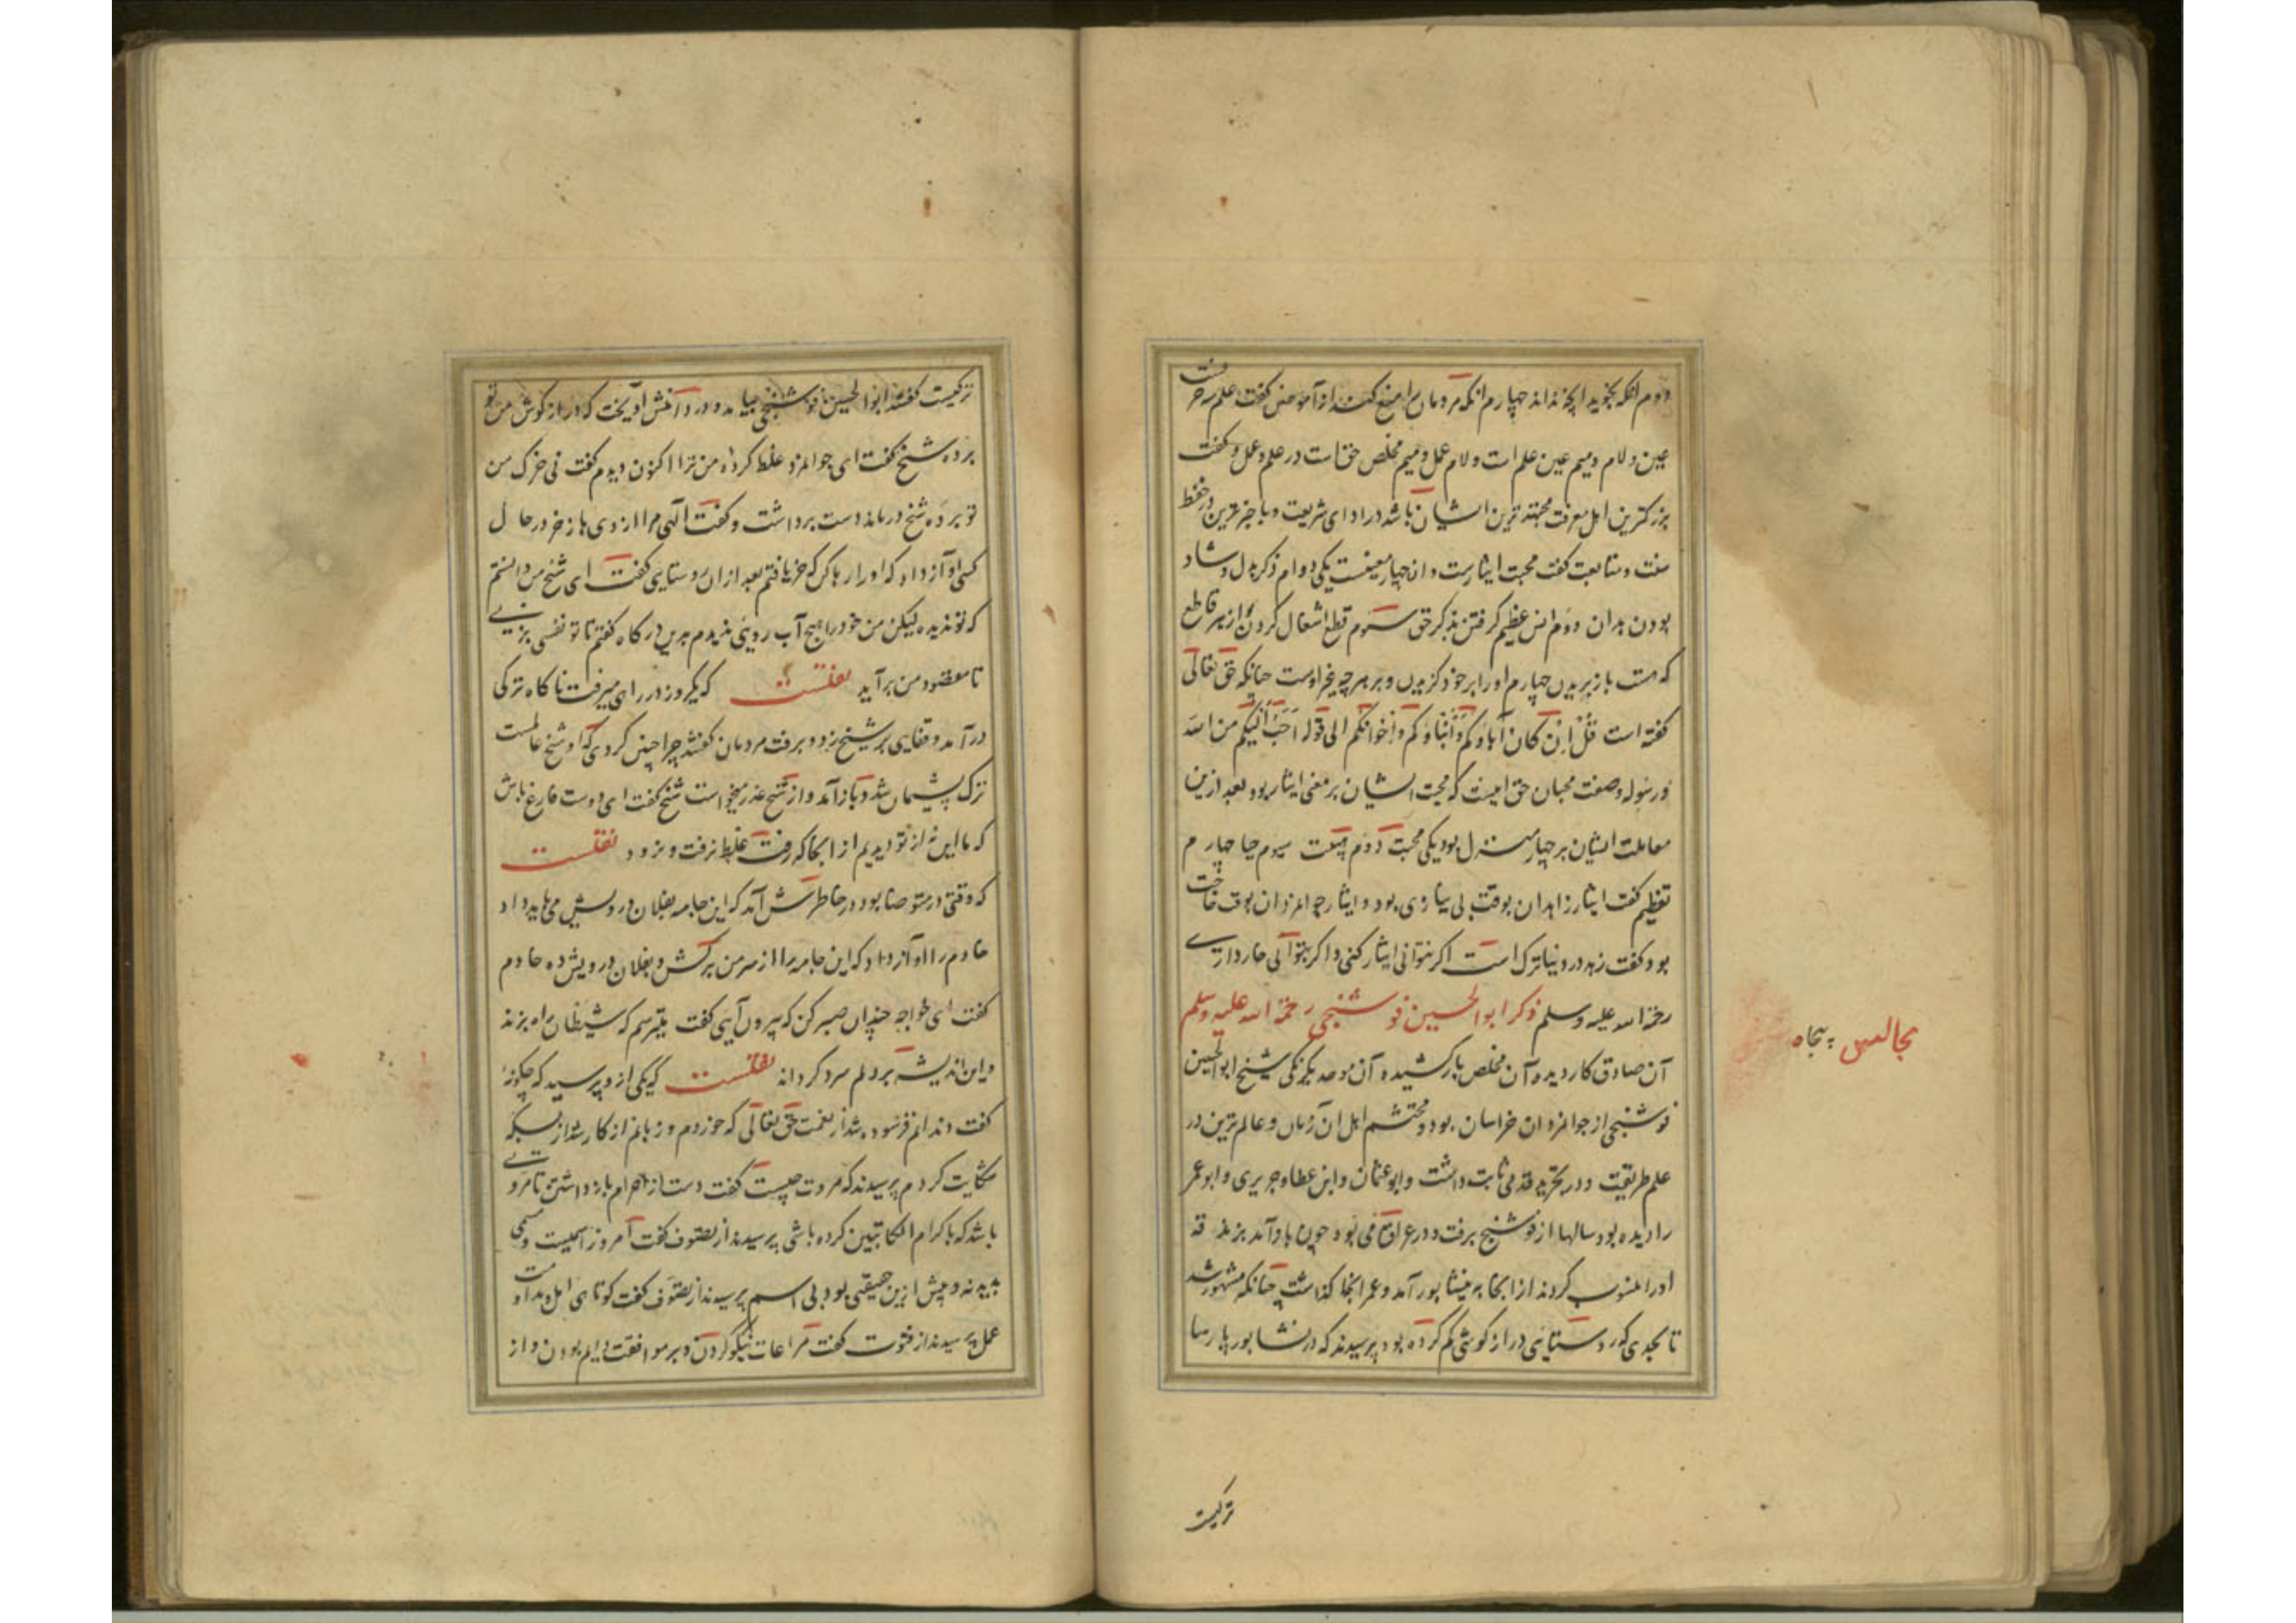 دوم انکه بجویند انچه ندانند چهارم انکه مردمان را منع کنند از آموختن گفت علم سه حرفست
عین و لام و میم عین علم است و لام عمل و میم مخلص حق است در علم و عمل و گفت
بزرکترین اهل معرفت مجتهدترین ایشان باشد در ادای شریعت و با رغبت ترین در حفظ
سنت و متابعت گفت محبت ایثارست و ان چهار معنیست یکی دوام ذکر بدل و شاد
بودن بدان دوم انس عظیم کرفتن بذکر حق سوم قطع اشغال کردن و از هر قاطع
که هست باز بریدن چهارم او را بر خود کزیدن و بر هر چه غیر اوست چنانکه حق تعالی
گفته است قل ان کان آباؤکم و ابناؤکم و اخوانکم الی قوله احب الیکم من الله
و رسوله و صفت محبان حق اینست که محبت ایشان بر معنی ایثار بود بعد ازین
معاملت ایشان بر چهار منزل بود یکی محبت دوم هیبت سیوم حیا چهارم
تعظیم گفت ایثار زاهدان بوقت بی نیازی بود و ایثار جوامردان بوقت حاجت
بود و گفت زهد در دنیا ترک است اکر نتوانی ایثار کنی و اکر نتوانی خوار داری
رحمة الله علیه وسلم ذکر ابو الحسین فوشنجی رحمة الله علیه وسلم
مجالس پنجاه
آن صادق کار دیده و آن مخلص بار کشیده و آن موحد یکرنکی شیخ ابو الحسین
فوشنجی از جوامردان خراسان بود و محتشم اهل ان زمان و عالم ترین در
علم طریقت و در تجرید قدمی ثابت داشت و ابو عثمان و ابن عطا و جریری و ابو عمر
را دیده بود سالها از فوشنج برفت و در عراق می بود چون باز آمد بزندقه
او را منسوب کردند از انجا به نیشابور آمد و عمر انجا کذاشت چنانکه مشهور شد
تا بحدی که روستائی دراز کوشی کم کرده بود پرسید که در نشابور پارسا
ترکیست
ترکیست گفتند ابو الحسین فوشنجی بیامد و در دامنش آویخت که دراز کوش من تو
برده شیخ گفت ای جوامرد غلط کرده من ترا اکنون دیدم گفت نی خرک من
تو برده شیخ درماند دست برداشت و گفت الهی مرا از وی باز خر در حال
کسی آواز داد که او را رها کن که خر یافتم بعد از ان روستایی گفت ای شیخ من دانستم
که تو ندیده لیکن من خود را هیچ آب رویی ندیدم بدین درکاه گفتم تا تو نفسی بزنی
تا مقصود من برآید نقلست که یکروز در راهی میرفت ناکاه ترکی
درآمد و قفایی بر شیخ زد و برفت مردمان کفتند چرا چنین کردی که او شیخ عالمست
ترک پشیمان شد و باز آمد و از شیخ عذر میخواست شیخ گفت ای دوست فارغ باش
که ما این نه از تو دیدیم از انجا که رفت غلط نرفت و نرود نقلست
که وقتی در متوضا بود در خاطرش آمد که این جامه بفلان درویش می باید داد
خادم را آواز داد که این جامه را از سر من برکش و بفلان درویش ده خادم
گفت ای خواجه چندان صبر کن که بیرون آیی گفت میترسم که شیطان راه بزند
و این اندیشه بر دلم سرد کرداند نقلست که یکی ازو پرسید که چکونه
گفت دندانم فرسوده شد از نعمت حق تعالی که خوردم و زبانم از کار شد از بسکه
شکایت کردم پرسیدند که مروت چیست گفت دست از حرام بازداشتن تا مروتی
باشد که با کرام الکاتبین کرده باشی پرسیدند از تصوف گفت امروز اسمیست و مسمی
پدید نه و پیش ازین حقیقتی بود بی اسم پرسیدند از تصوف گفت کوتاهی امل و مداومت
عمل پرسیدند از فتوت گفت مراعات نیکو کردن و بر موافقت دایم بودن و از